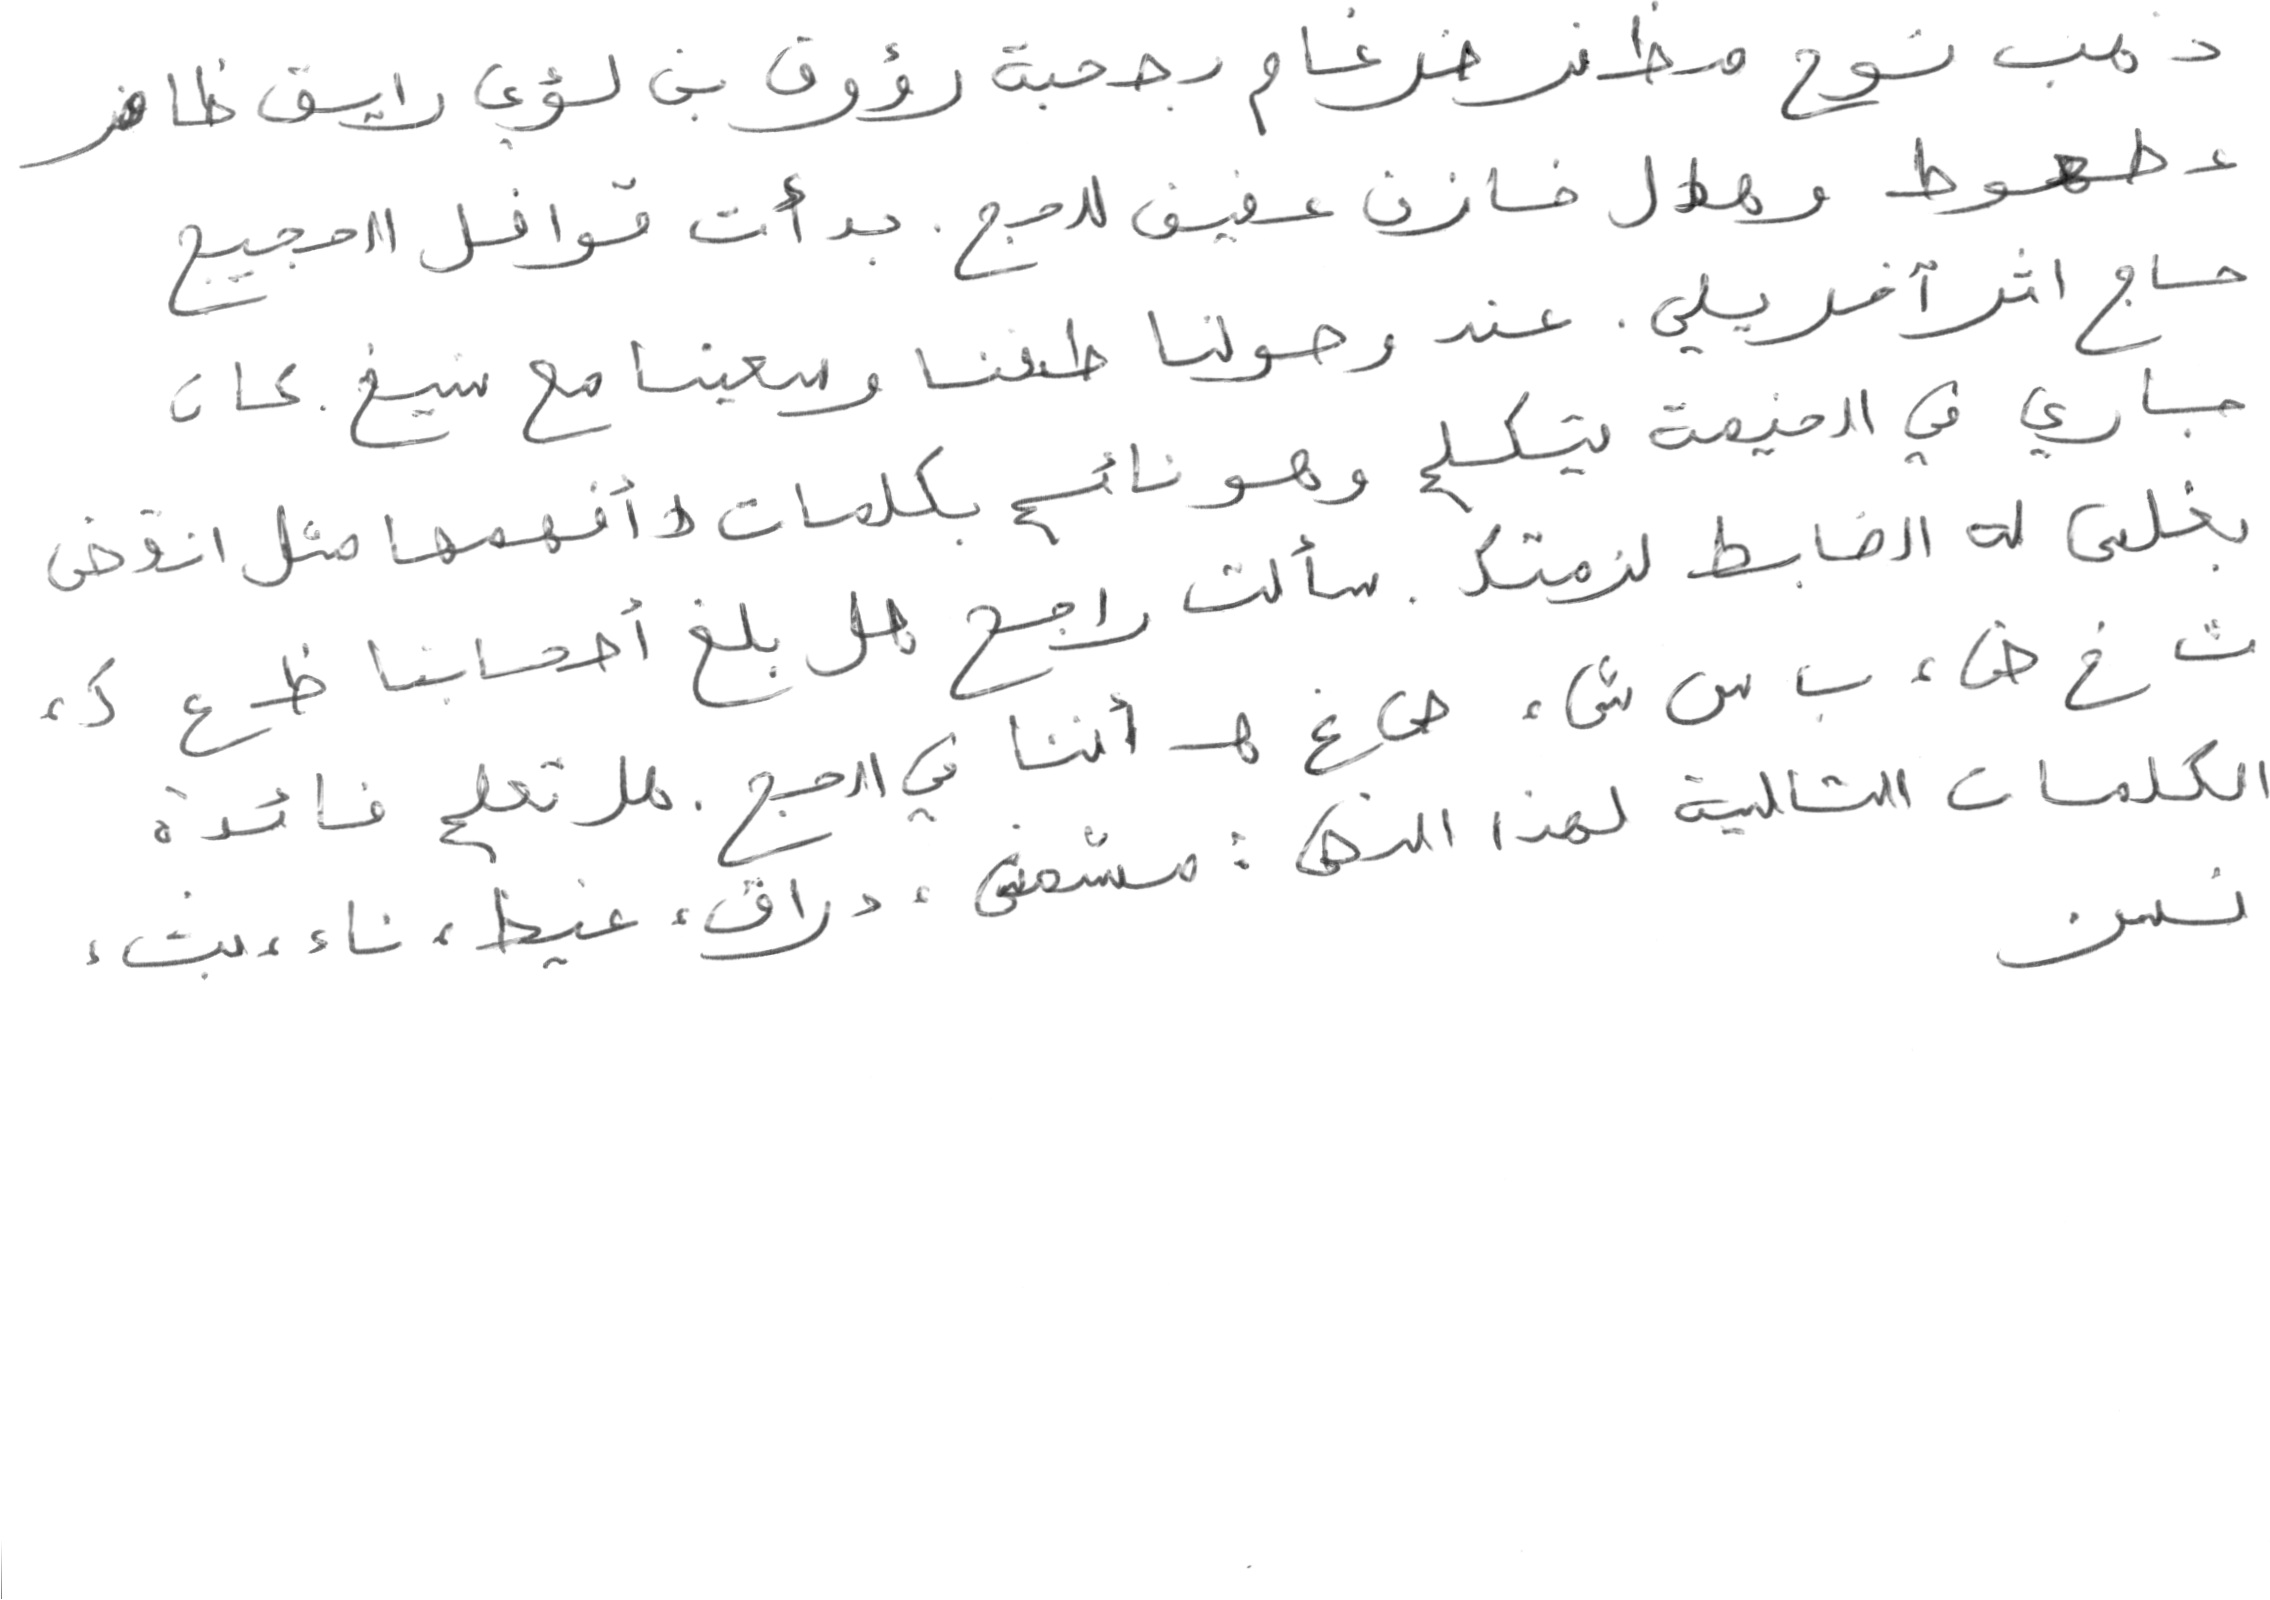 ذهب نوح مظفر ضرغام بصحبة رؤوف بن لؤي رايق ظافر
عطعوط وهلال خازن عفيف للحج. بدأت قوافل الحجيج
حاج اثر آخر يلي. عند وصولنا طفنا وسعينا مع شيخ. كان
جاري في الخيمة يتكلم وهو نائم بكلمات لا أفهمها مثل انوخى
بغلس له الضابط لزمتك. سألت راجح هل بلغ أصحابنا ظ ع ك،
ث خ ض، ب س ش، ص غ هـ أننا في الحج. هل تعلم فائدة
الكلمات التالية لهذا النص: مشمش، دراق، غيظ، ناء، بث،
نسر